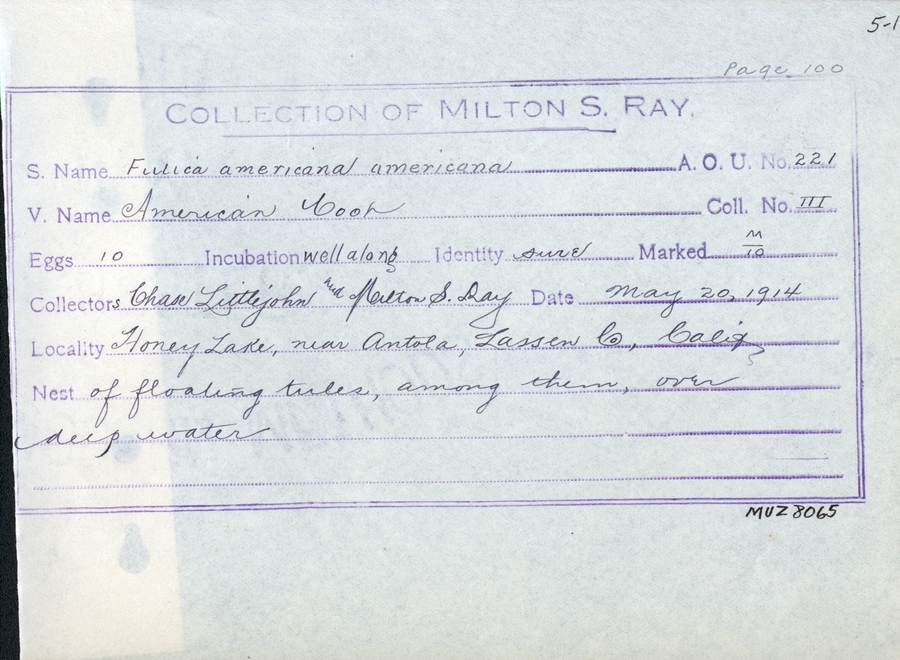 5-1
Page 100
COLLECTION OF MILTON S. RAY.
S. Name Fulica americana americana A. O. U. No. 221
V. Name American Coot Coll. No. III
Eggs 10 Incubation well along Identity sure Marked M/10
Collectors Chase Littlejohn and Milton S. Ray Date May 20, 1914
Locality Honey Lake, near Antola, Lassen Co, Calif
Nest of floating tules, among them, over
deep water
MUZ 8065